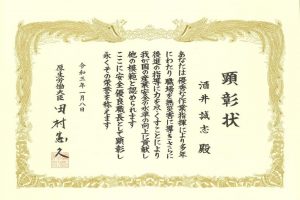 顕彰状
酒井誠志 殿
あなたは優秀な作業指揮により多年
にわたり職場を無災害に導きさらに
後進の指導に力を尽くすことにより
我が国の産業安全の水準の向上に貢献し
他の模範と認められます
ここに安全優良職長として顕彰し
永くその栄誉を称えます
令和三年一月八日
厚生労働大臣 田村憲久